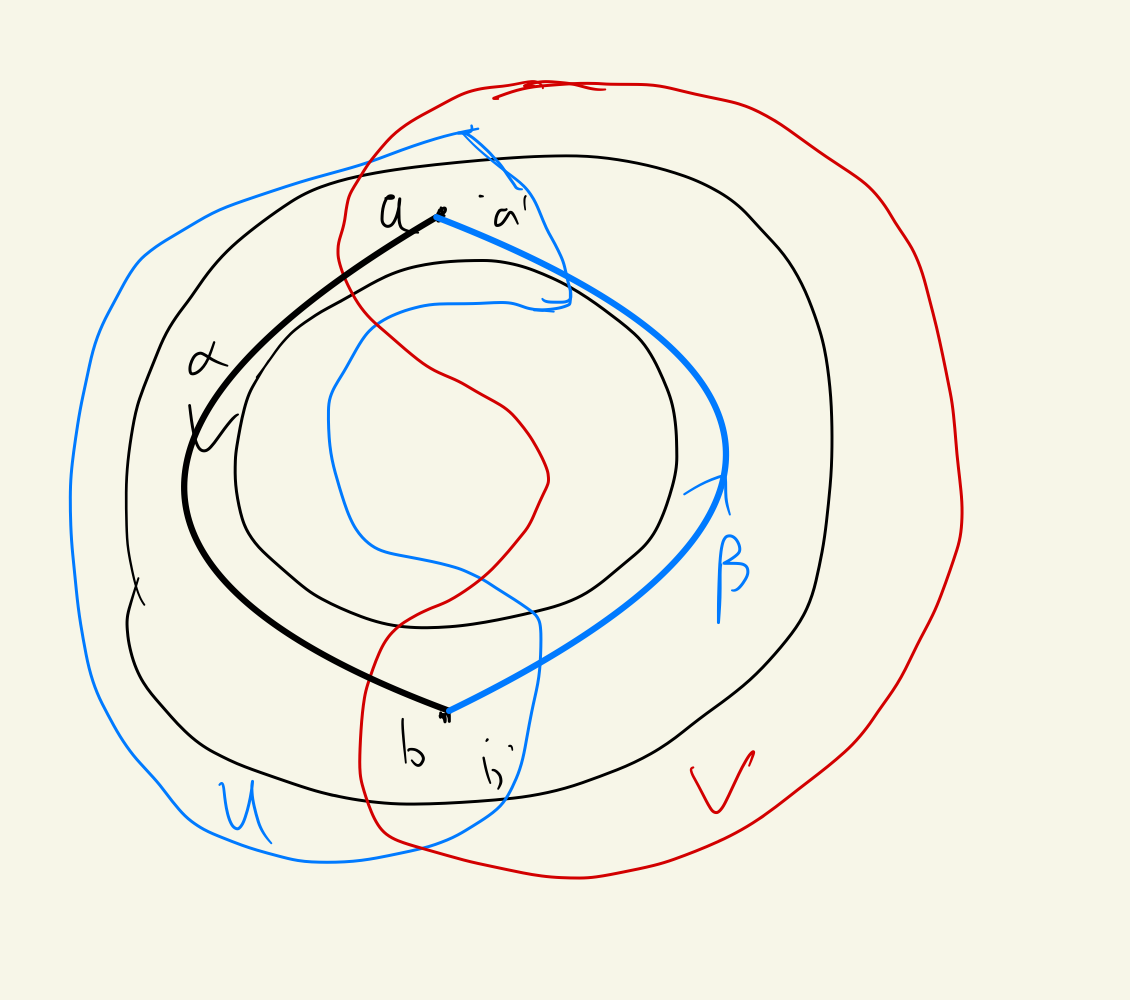 a a'
α
β
b b'
U V